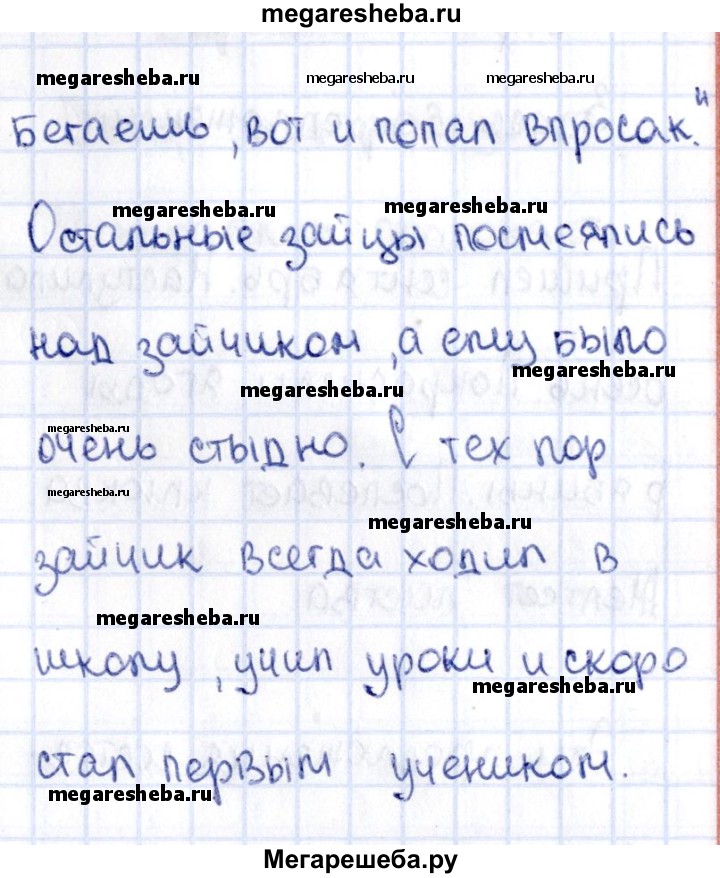 megaresheba.ru
megaresheba.ru megaresheba.ru megaresheba.ru
Бегаешь, вот и попал впросак."
megaresheba.ru megaresheba.ru
Остальные зайцы посмеялись
над зайчиком, а ему было
megaresheba.ru megaresheba.ru
megaresheba.ru
очень стыдно. С тех пор
megaresheba.ru
megaresheba.ru
зайчик всегда ходил в
megaresheba.ru
школу, учил уроки и скоро
megaresheba.ru
стал первым учеником.
megaresheba.ru
Мегарешеба.ру